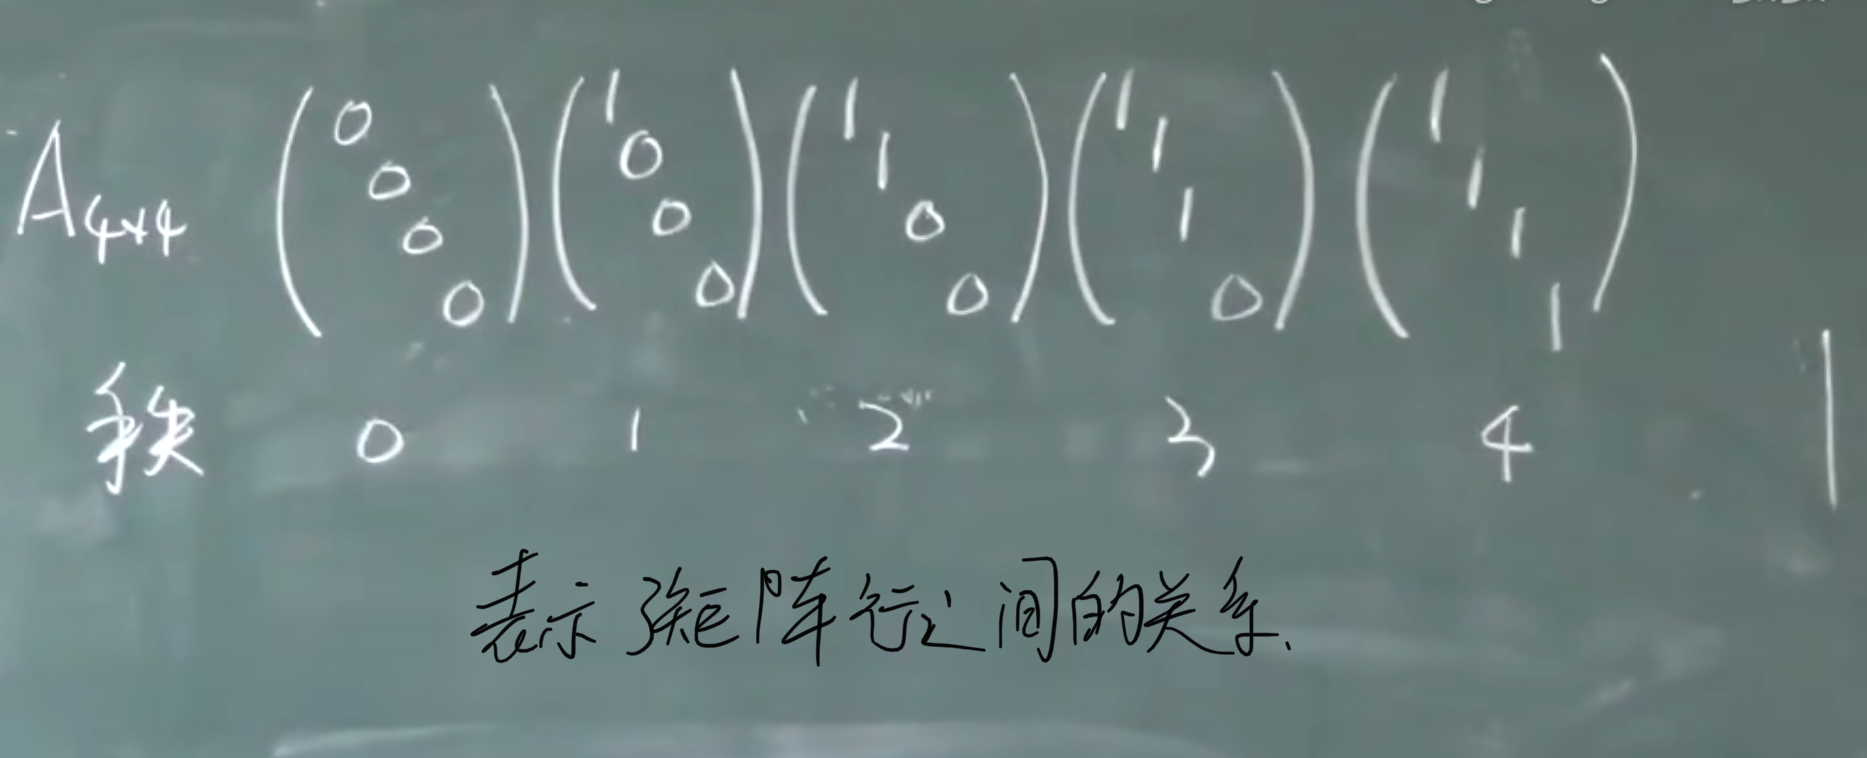 A4×4 (0 0 0 0) (1 0 0 0) (1 1 0 0) (1 1 1 0) (1 1 1 1)
秩 0 1 2 3 4
表示矩阵行之间的关系.